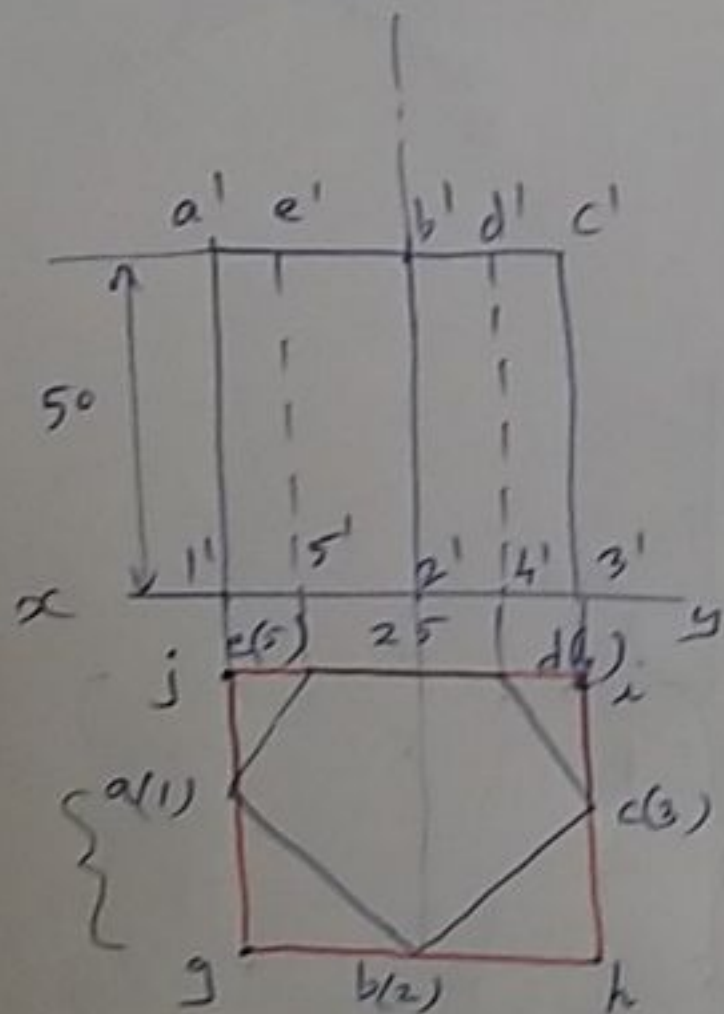 a' e' b' d' c'
50
1' 5' 2' 4' 3'
x y
e(5) 25
j
a(1) c(3)
g b(2) h